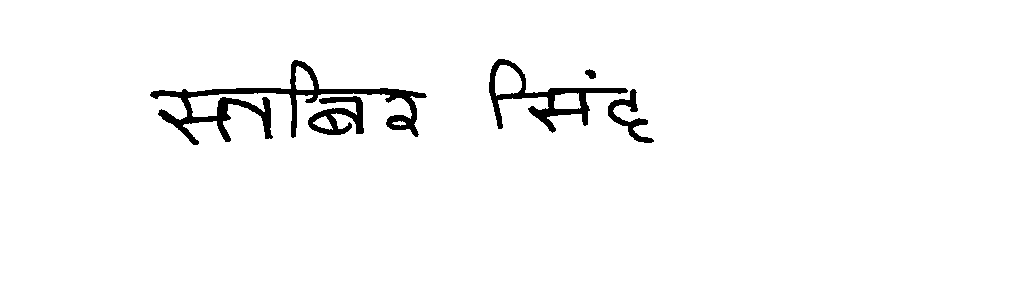 सतबिर सिंह